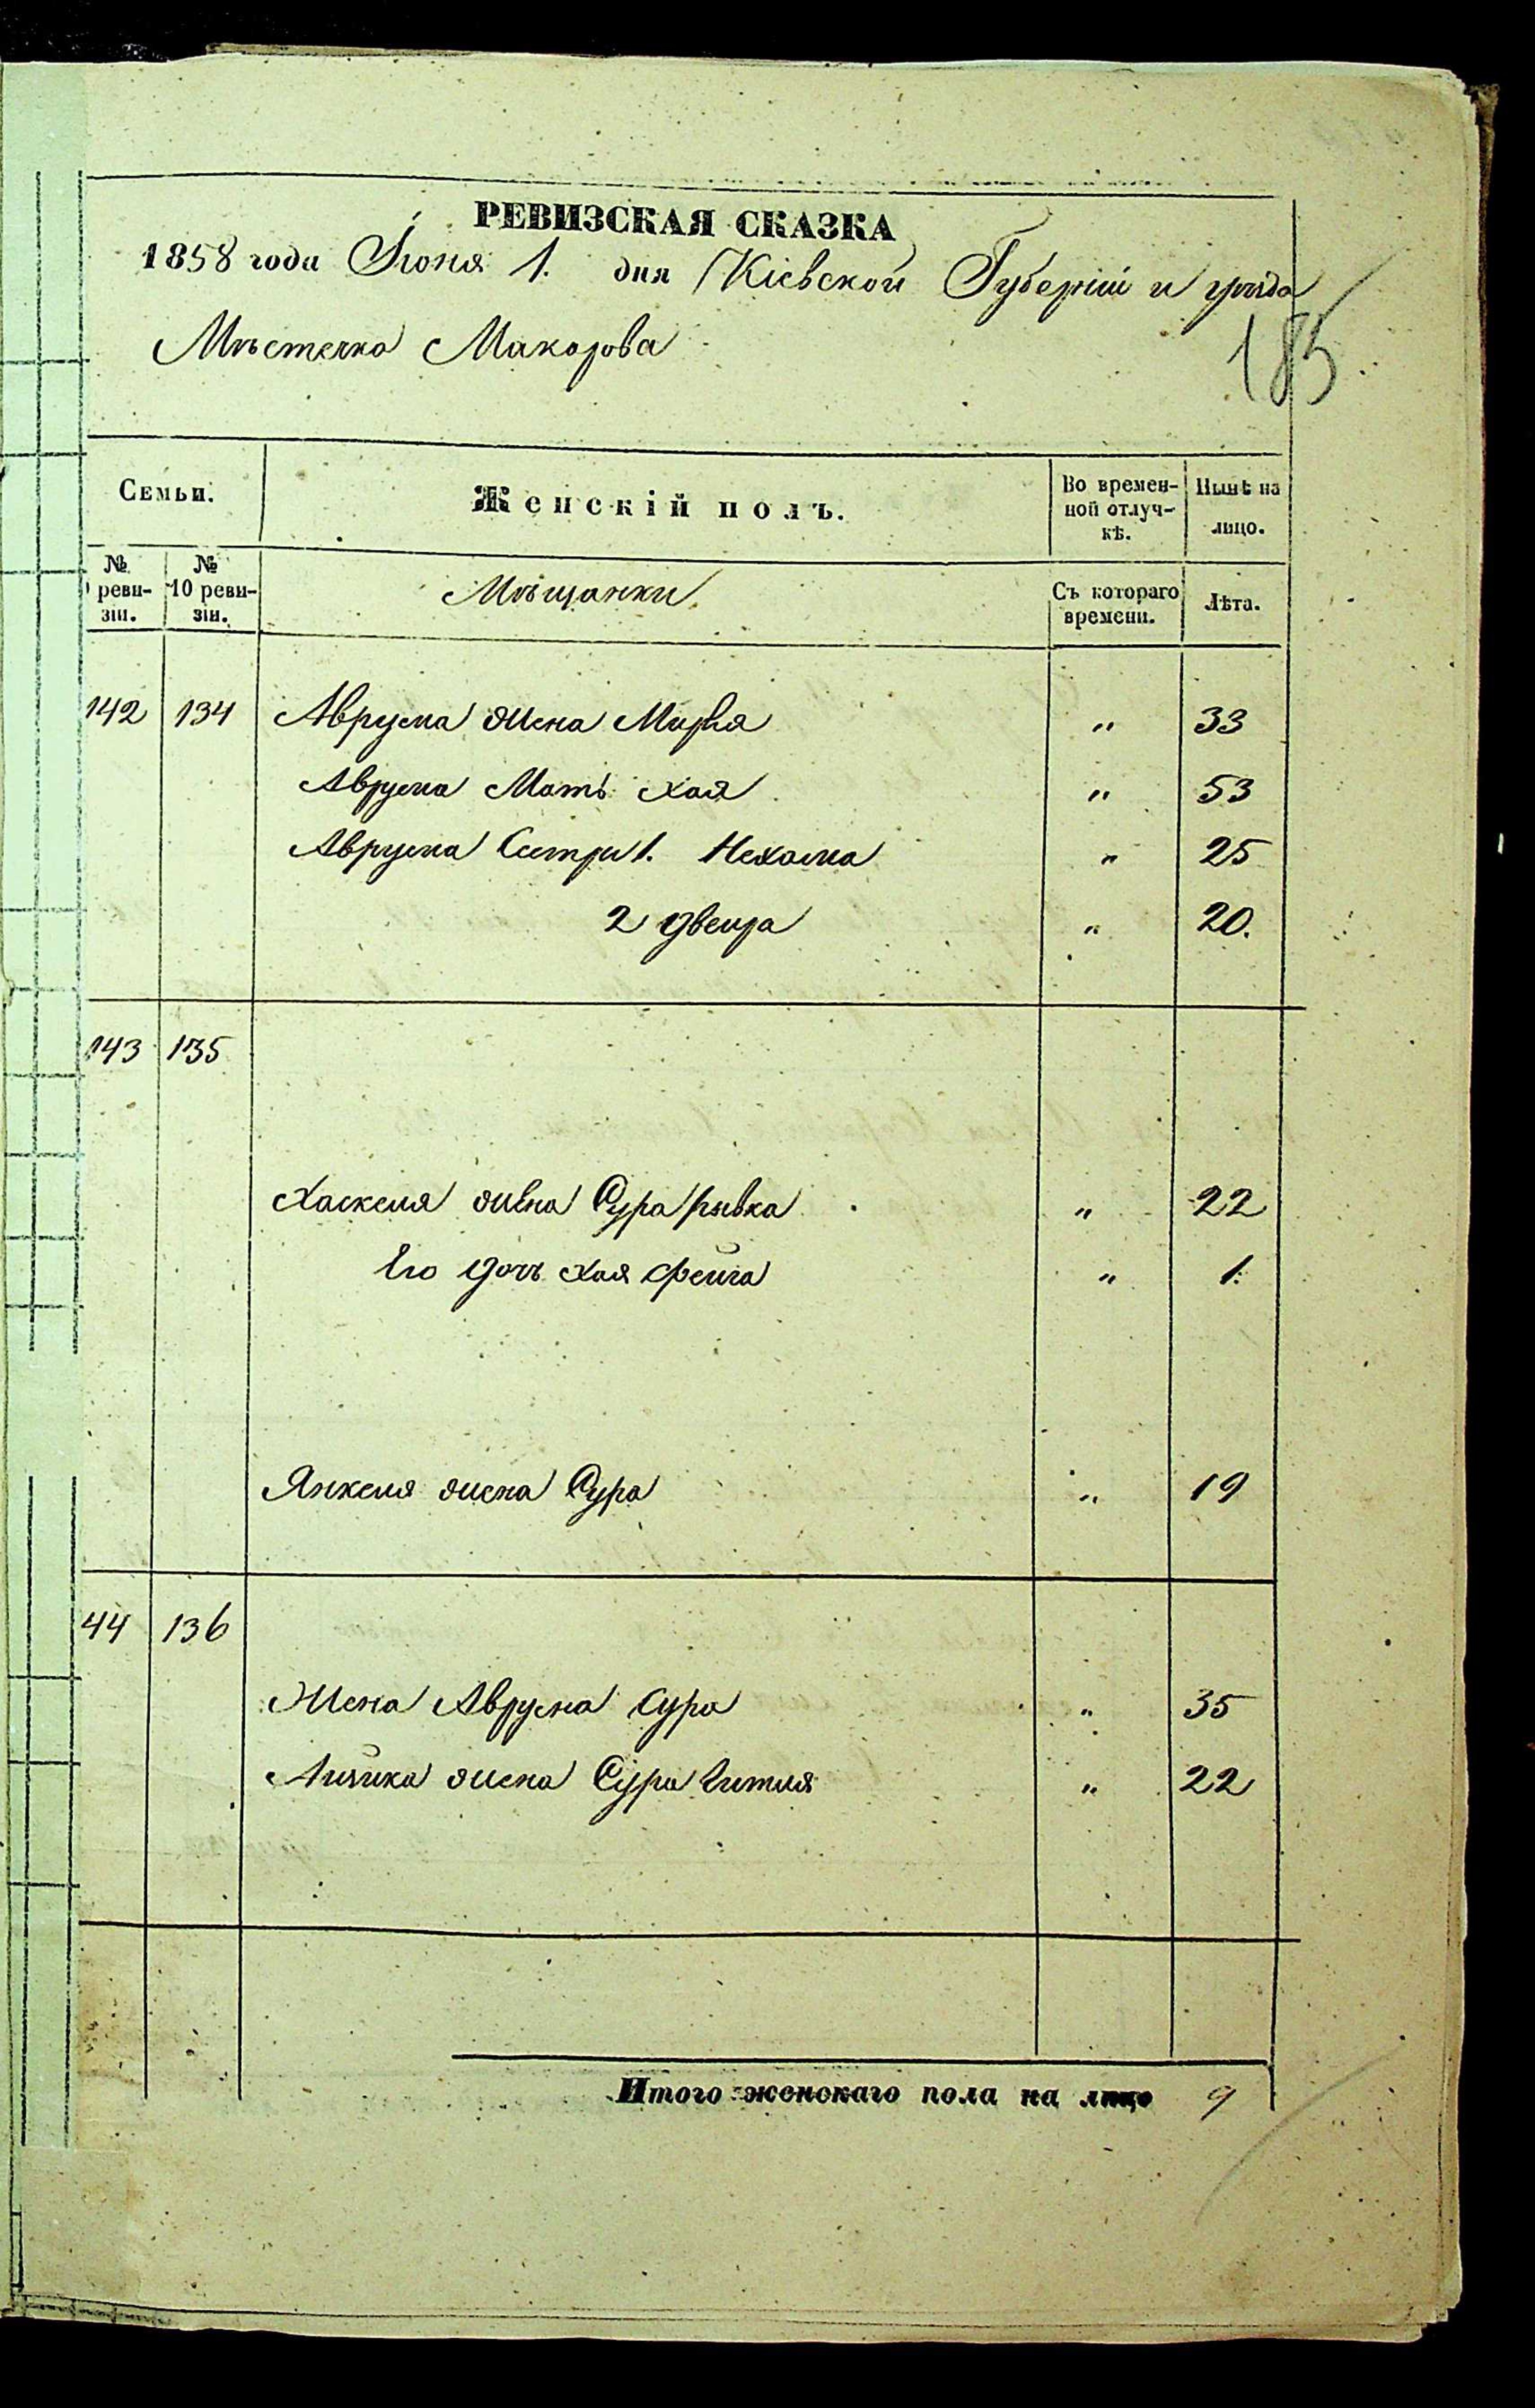 РЕВИЗСКАЯ СКАЗКА
1858 года Іюня 1. дня Кіевской Губерніи и уѣзда
Мѣстечка Макарова
185
Семьи. Женскій полъ. Во временной отлучкѣ. Нынѣ на лицо.
№ ревизіи. № 10 ревизіи. Мѣщанки Съ котораго времени. Лѣта.
142 134 Аврума жена Мирля " 33
Аврума Мать Хая " 53
Аврума Сестры 1. Нехама " 25
2 Двейра " 20.
143 135
Хаскеля жена Сура Рывка " 22
Его дочь Хая Фейга " 1.
Янкеля жена Сура " 19
44 136
Жена Аврума Сура " 35
жена Сура Гитля " 22
Итого женскаго пола на лицо 9